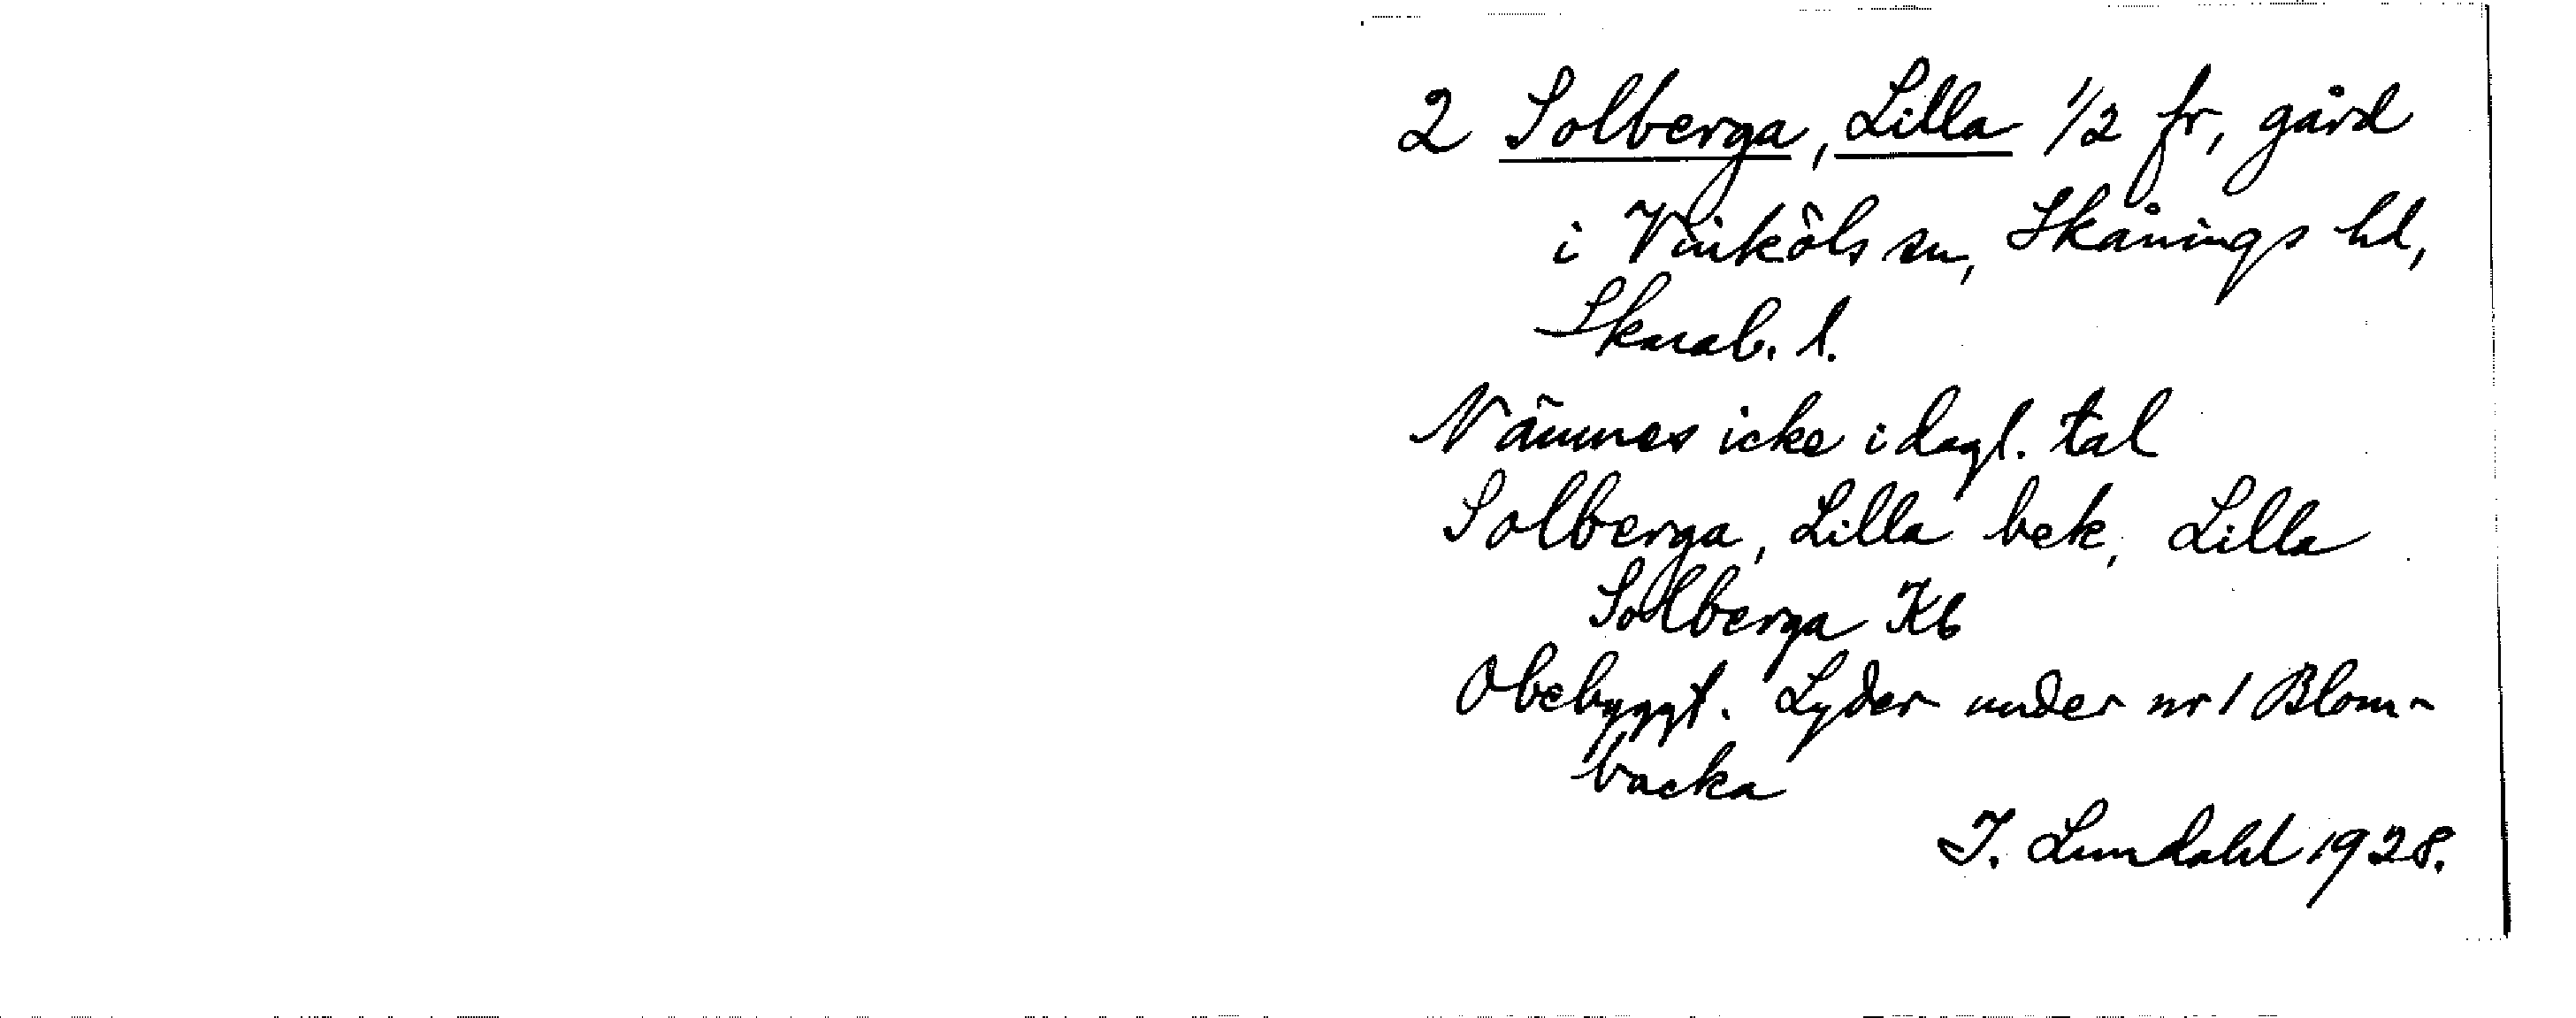 2 Solberga, Lilla 1/2 fr, gård
i Vinköls sn, Skånings hd,
Skarab. l.
Nämnes icke i dagl. tal
Solberga, Lilla bek, Lilla
Solberga Kb
Obebyggt. Lyder under nr 1 Blom-
backa
I. Lundahl 1928.